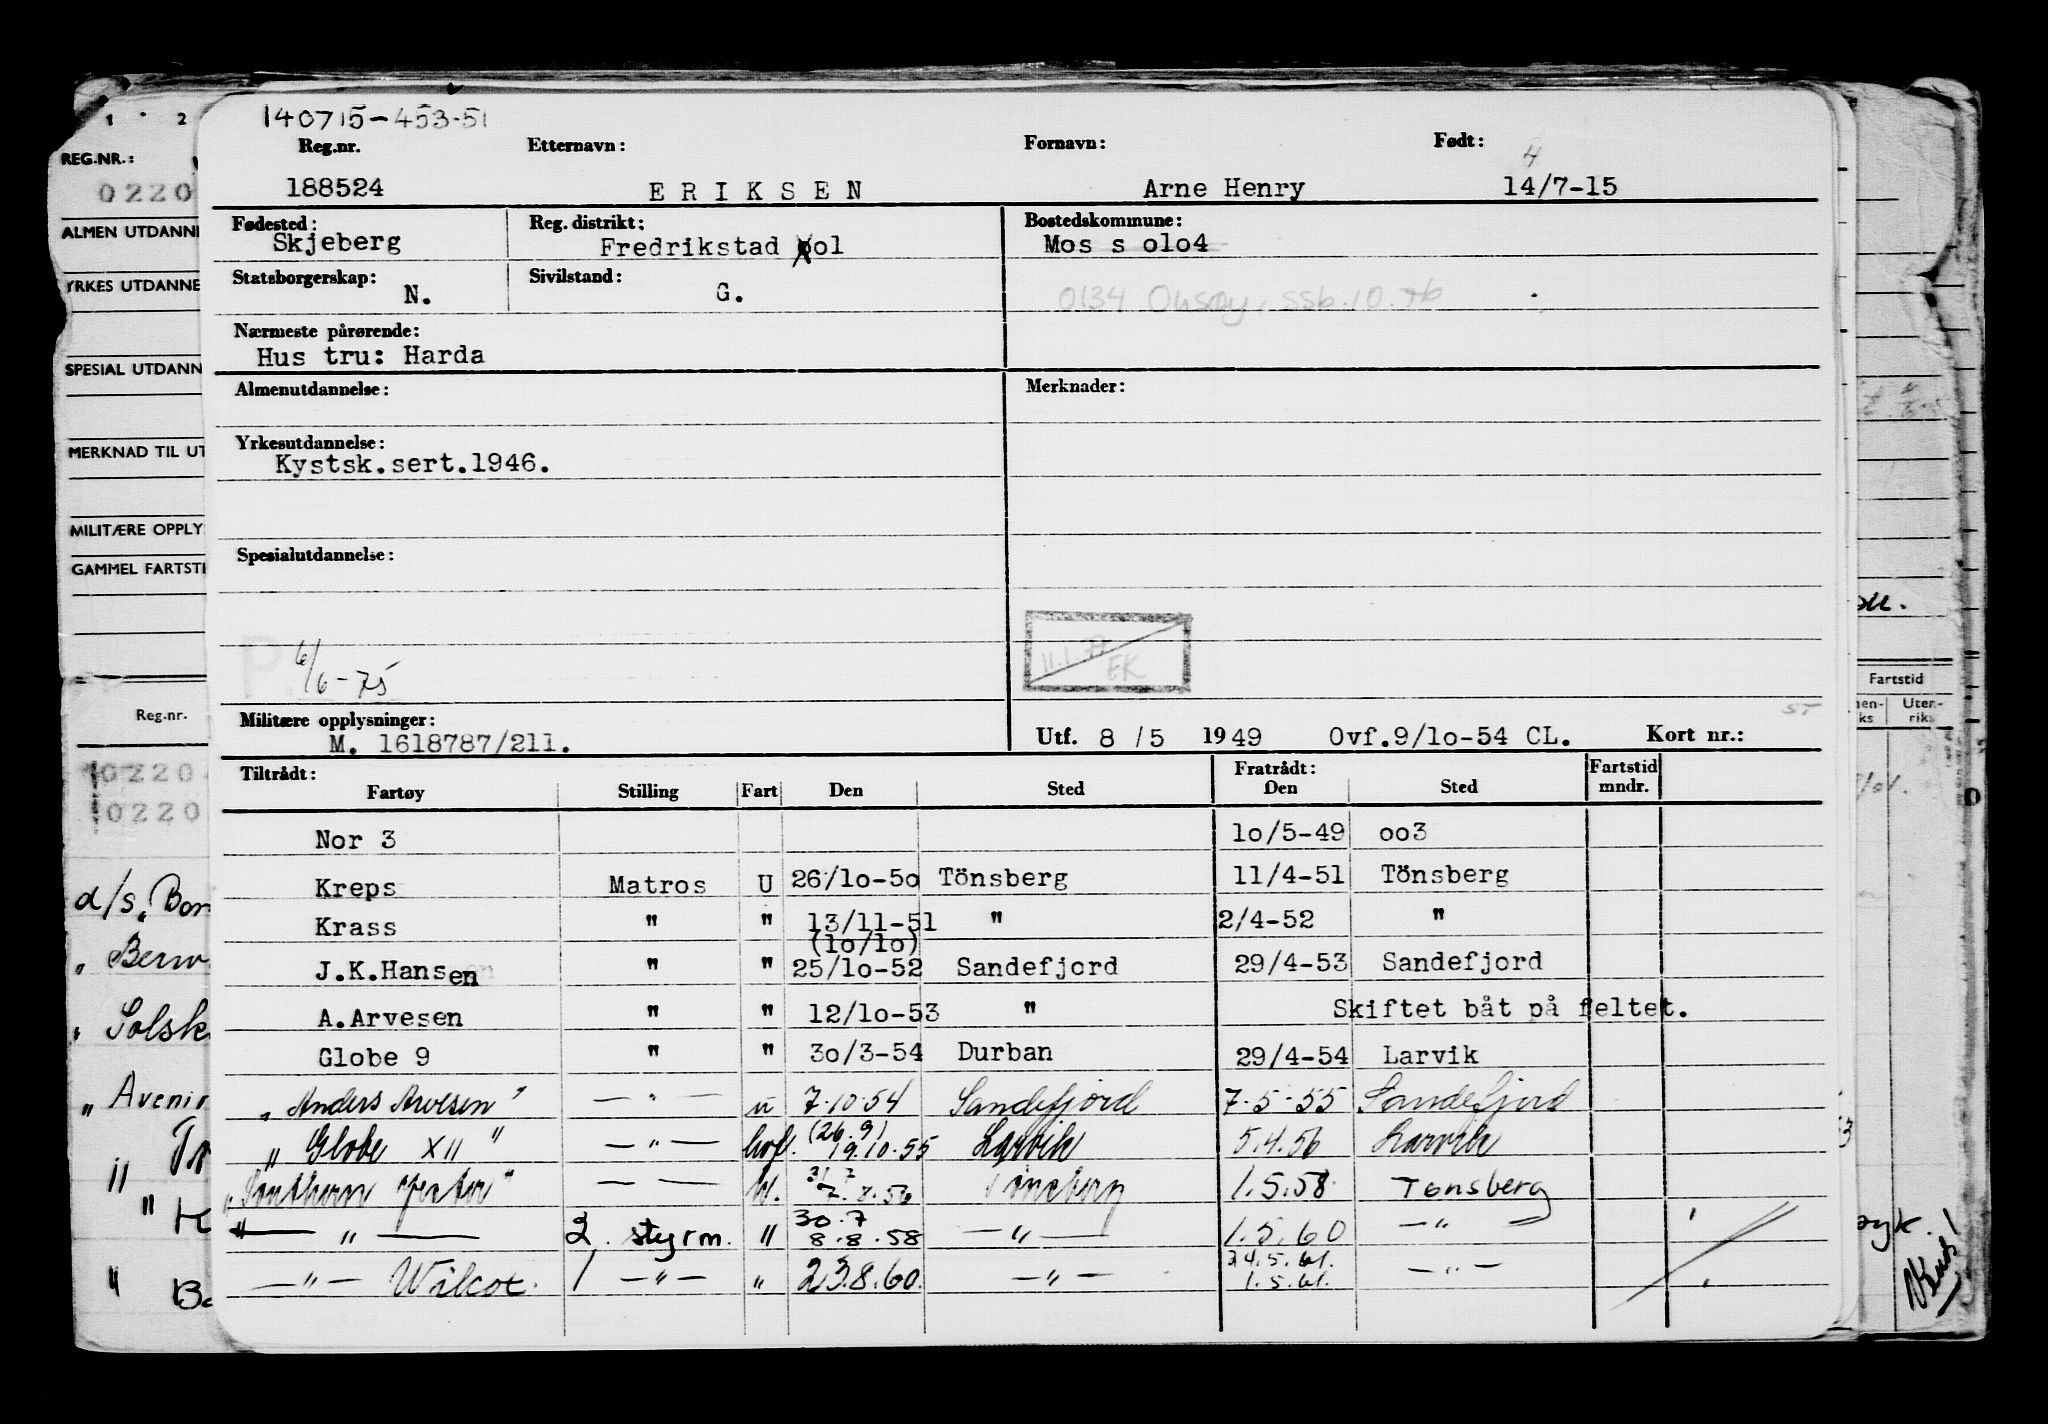 140715-453-51
Reg.nr. Etternavn: Fornavn: Født:
4
188524 ERIKSEN Arne Henry 14/7-15
Fødested: Reg. distrikt: Bostedskommune:
Skjeberg Fredrikstad ol Mos s olo4
Statsborgerskap: Sivilstand:
N. G. 0134 Onsøy, ssb.10.76
Nærmeste pårørende:
Hus tru: Harda
Almenutdannelse: Merknader:
Yrkesutdannelse:
Kystsk.sert.1946.
Spesialutdannelse:
11.1.77 EK
6/6-75
Militære opplysninger:
M. 1618787/211. Utf. 8 /5 1949 Ovf.9/lo-54 CL. Kort nr.: ST
Tiltrådt: Fratrådt: Fartstid
Fartøy Stilling Fart Den Sted Den Sted mndr.
Nor 3 lo/5-49 oo3
Kreps Matros U 26/lo-5o Tönsberg 11/4-51 Tönsberg
Krass " " 13/11-51 " 2/4-52 "
(lo/lo)
J.K.Hansen " " 25/lo-52 Sandefjord 29/4-53 Sandefjord
A.Arvesen " " 12/lo-53 " Skiftet båt på feltet.
Globe 9 " " 3o/3-54 Durban 29/4-54 Larvik
" Anders Arvesen " — " — u 7.10.54 Sandefjord 7-5-55 Sandefjord
(26.9)
" Globe XII " — " — hvfl. 19.10.55 Larvik 5.4.56 Larvik
31 7
" Southern " — " — hv. 7.8.56 Tønsberg 1.5.58 Tønsberg
30.7
" — " — 2. styrm. " 8.8.58 — " — 1.5.60 — " —
24.5.61.
— " — Wilcox. 1 — " — " 23.8.60. — " — 1.5.61. — " —
1 2
REG.NR.:
0220
ALMEN UTDANNE
YRKES UTDANNE
SPESIAL UTDANN
MERKNAD TIL UT
MILITÆRE OPPLY
GAMMEL FARTSTI
Reg.nr.
0220
0220
d/s "Bor
"
" Solsk
" Avenir
"
"
"
Fartstid
Uten-
ks riks